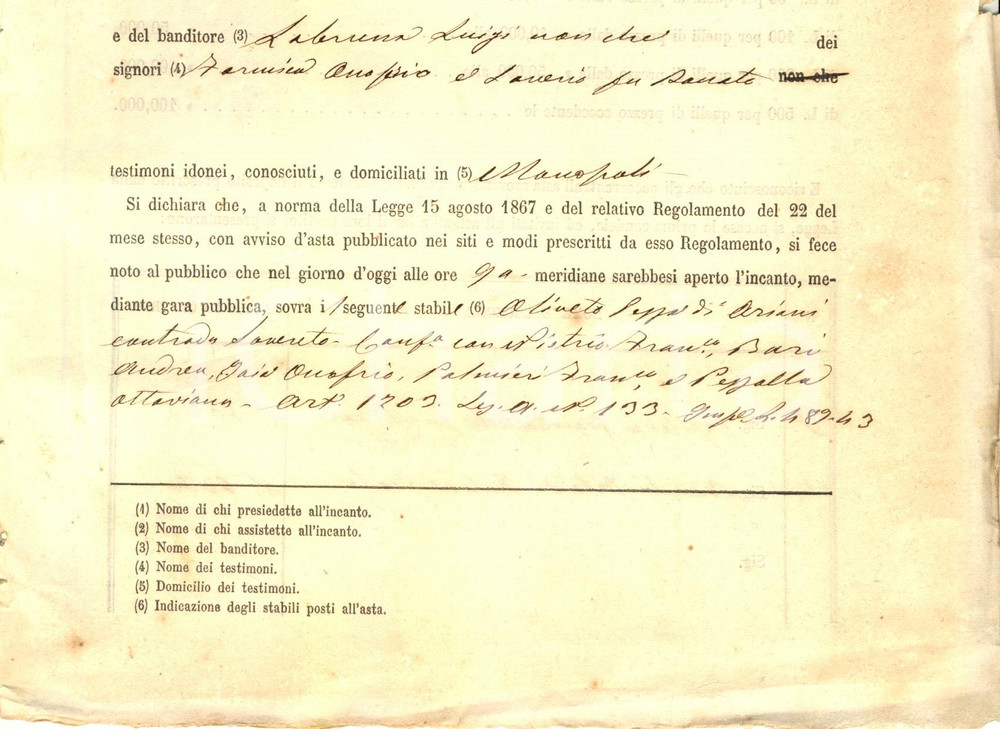 e del banditore (3) Labruna Luigi non che dei
signori (4) Farnisca Onofrio e Saverio fu Donato non che
testimoni idonei, conosciuti, e domiciliati in (5) Monopoli
Si dichiara che, a norma della Legge 15 agosto 1867 e del relativo Regolamento del 22 del
mese stesso, con avviso d'asta pubblicato nei siti e modi prescritti da esso Regolamento, si fece
noto al pubblico che nel giorno d'oggi alle ore 9 a- meridiane sarebbesi aperto l'incanto, me-
diante gara pubblica, sovra il seguente stabile (6) Oliveto di Ariani
contrada Sovereto - Conf.a con Pietro Fran.co, Bari
Andrea, Onofrio, Palmieri Fran.co e Pezzolla
Ottaviano - Art. 1203. N. 133 - L. 489.43
(1) Nome di chi presiedette all'incanto.
(2) Nome di chi assistette all'incanto.
(3) Nome del banditore.
(4) Nome dei testimoni.
(5) Domicilio dei testimoni.
(6) Indicazione degli stabili posti all'asta.